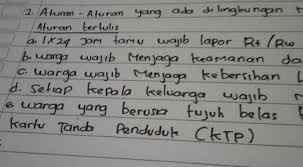 2. Aturan-Aturan yang ada di lingkungan
Aturan tertulis
a. 1x24 jam tamu wajib lapor Rt /Rw
b. warga wajib Menjaga keamanan da
c. warga wajib Menjaga kebersihan L
d. setiap kepala keluarga wajib
e warga yang berusia tujuh belas
kartu Tanda Penduduk (KTP)